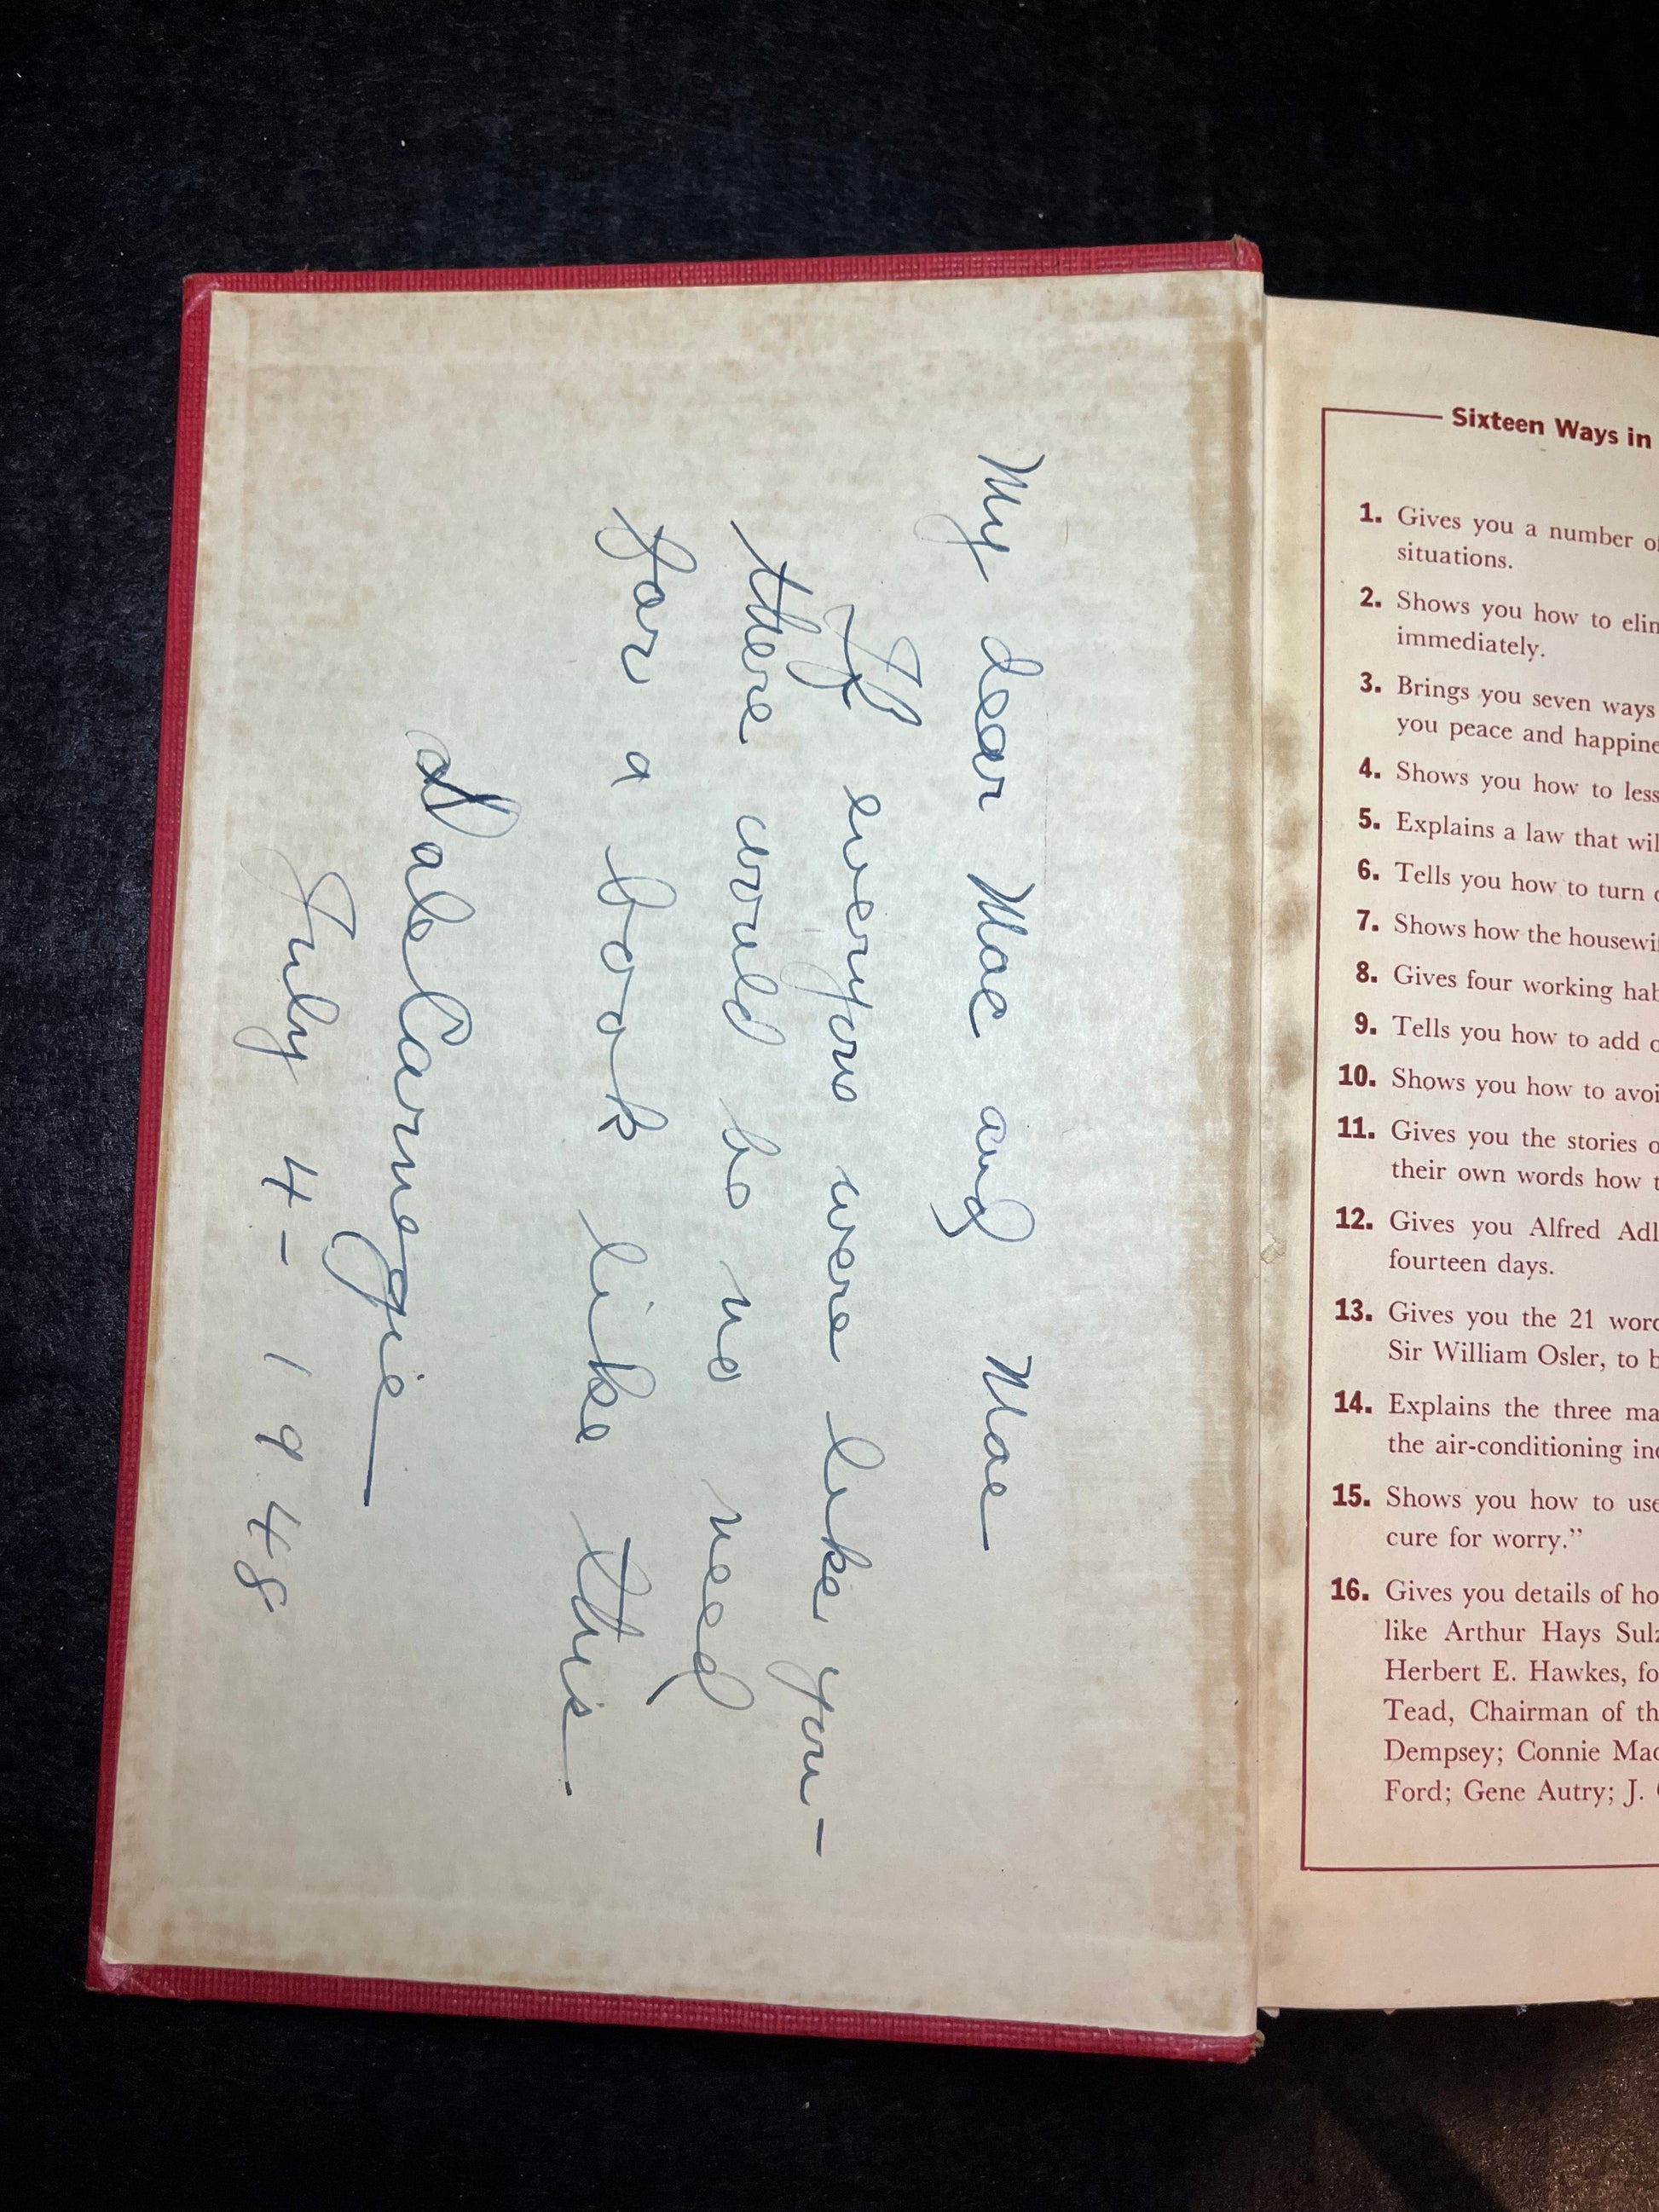 My dear Mac and Mae
If everyone were like you—
there would be no need
for a book like this.
Dale Carnegie
July 4 - 1948
Sixteen Ways in
1. Gives you a number of
situations.
2. Shows you how to elim
immediately.
3. Brings you seven ways
you peace and happine
4. Shows you how to less
5. Explains a law that wil
6. Tells you how to turn c
7. Shows how the housewif
8. Gives four working hab
9. Tells you how to add o
10. Shows you how to avoi
11. Gives you the stories o
their own words how t
12. Gives you Alfred Adl
fourteen days.
13. Gives you the 21 word
Sir William Osler, to b
14. Explains the three ma
the air-conditioning ind
15. Shows you how to use
cure for worry.”
16. Gives you details of ho
like Arthur Hays Sulz
Herbert E. Hawkes, fo
Tead, Chairman of th
Dempsey; Connie Mac
Ford; Gene Autry; J. C